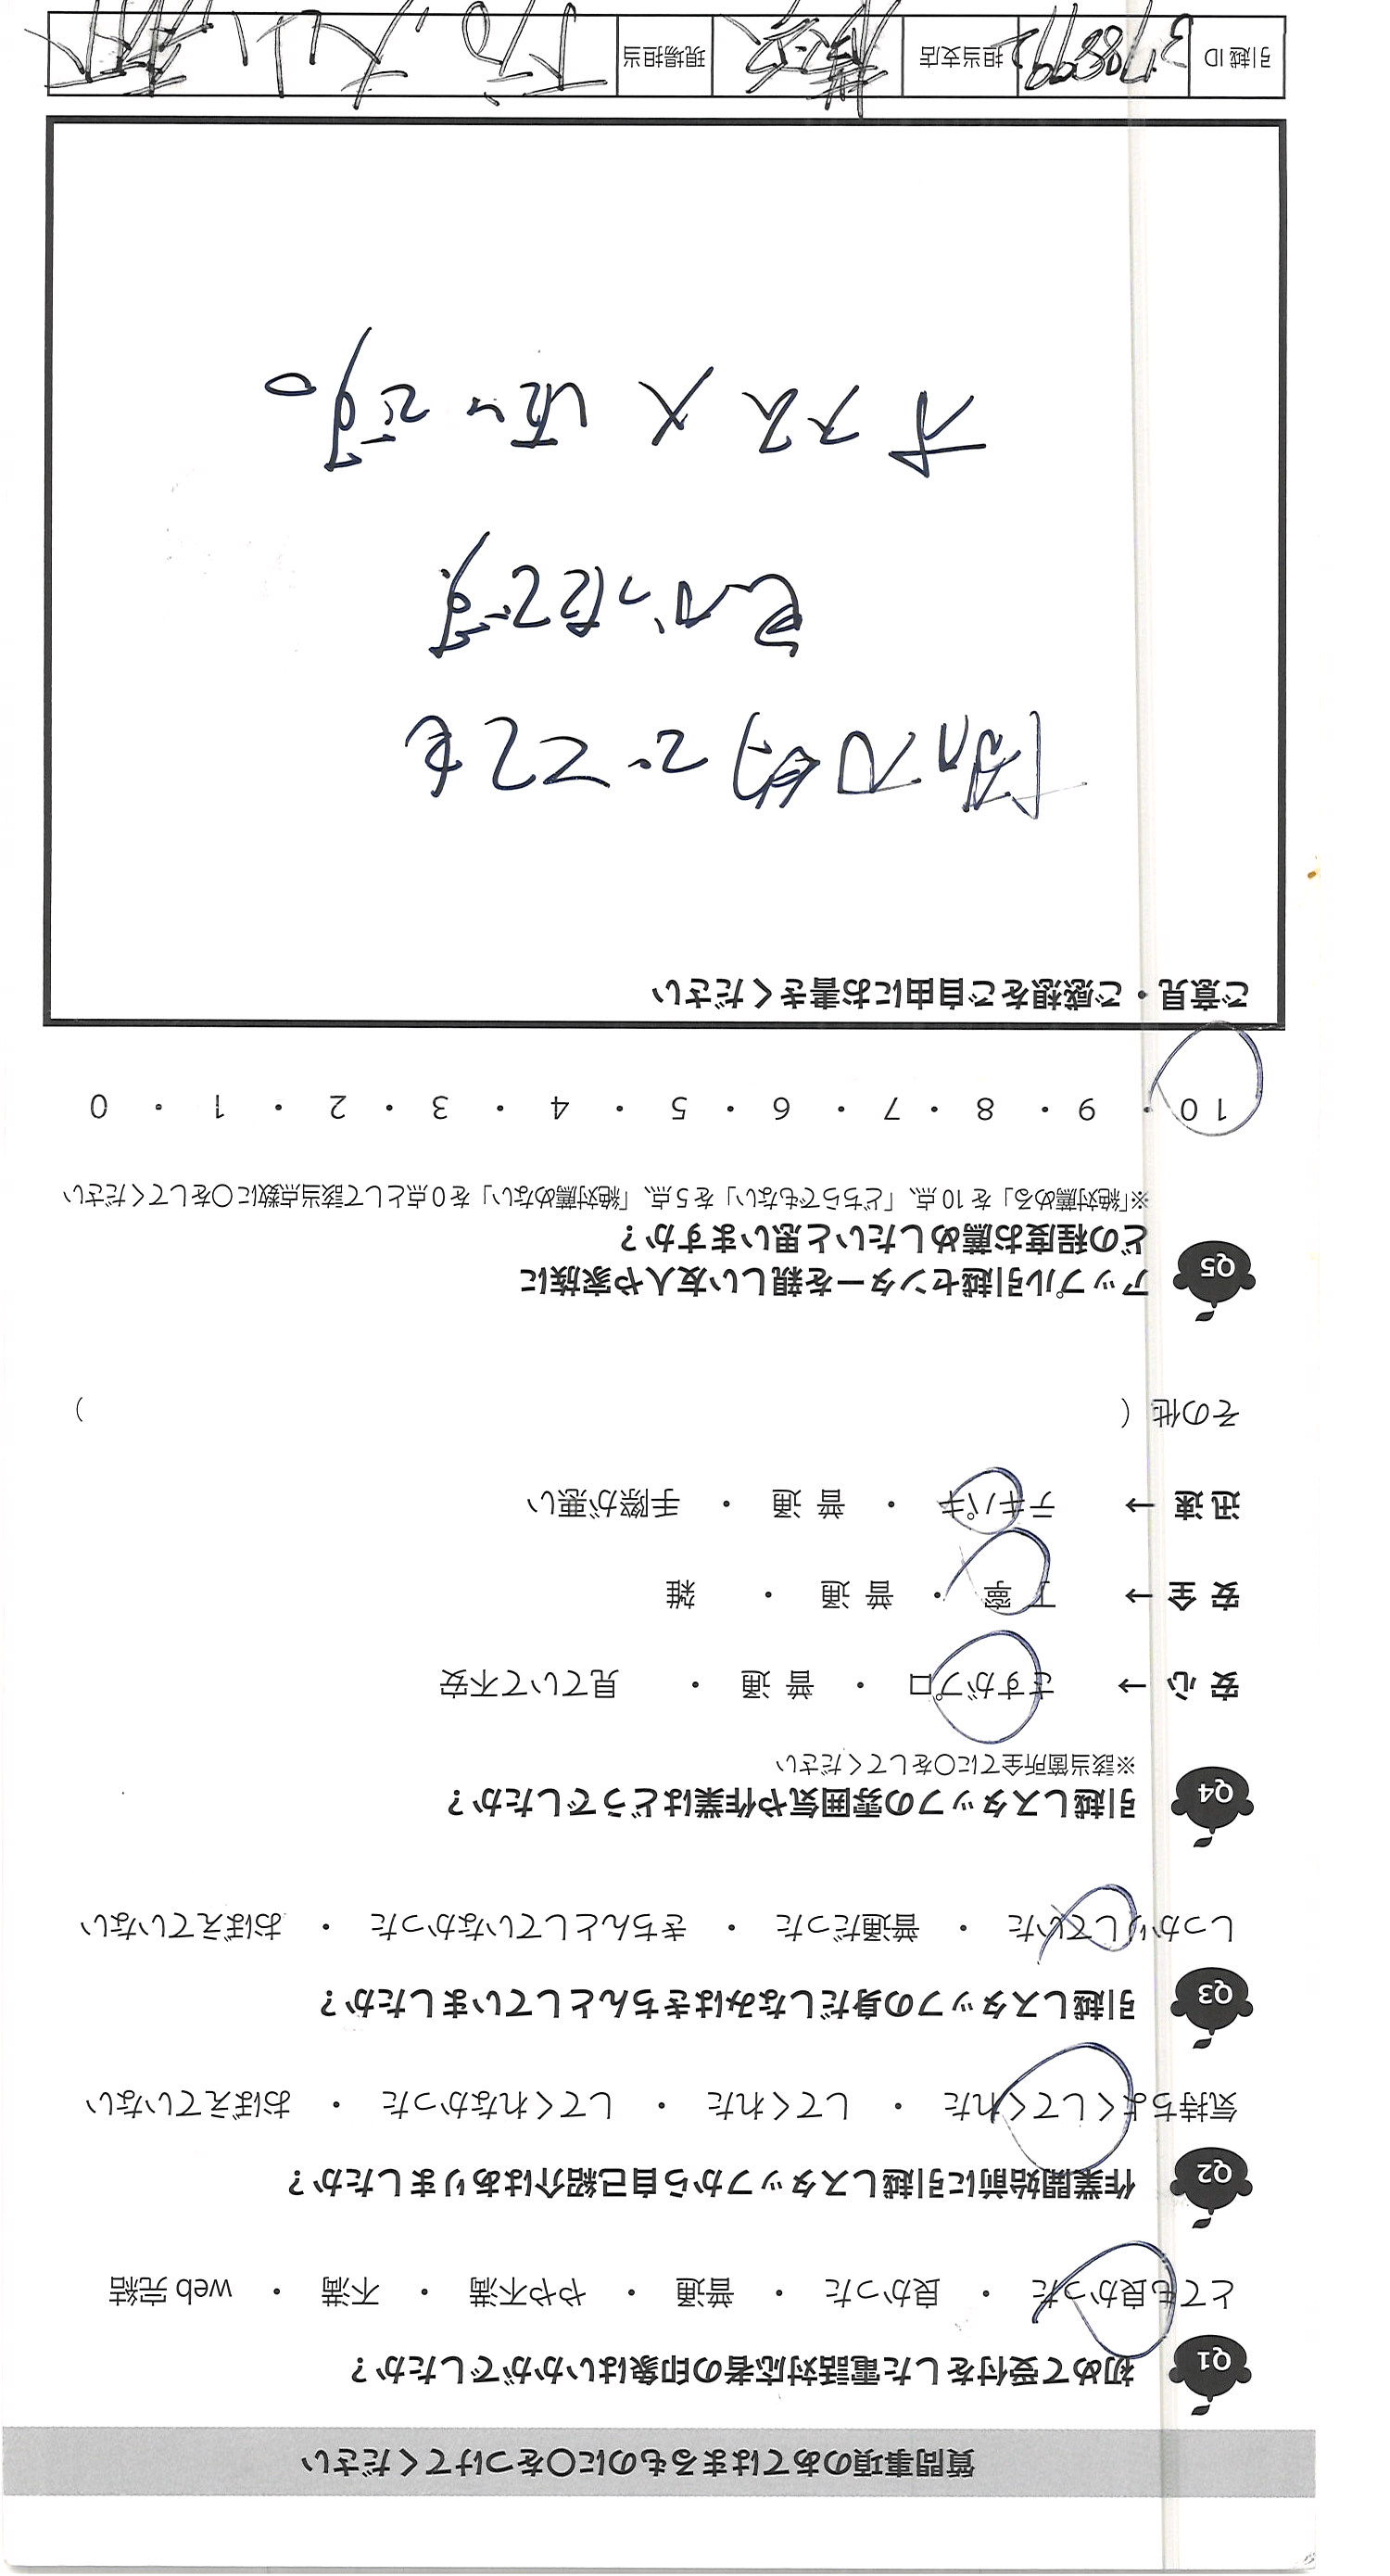 質問事項のあてはまるものに○をつけてください
Q1 初めて受付をした電話対応者の印象はいかがでしたか？
とても良かった ・ 良かった ・ 普通 ・ やや不満 ・ 不満 ・ web 完結
Q2 作業開始前に引越しスタッフから自己紹介はありましたか？
気持ちよくしてくれた ・ してくれた ・ してくれなかった ・ おぼえていない
Q3 引越しスタッフの身だしなみはきちんとしていましたか？
しっかりしていた ・ 普通だった ・ きちんとしていなかった ・ おぼえていない
Q4 引越しスタッフの雰囲気や作業はどうでしたか？
※該当箇所全てに○をしてください
安 心 → さすがプロ ・ 普 通 ・ 見ていて不安
安 全 → 丁 寧 ・ 普 通 ・ 雑
迅 速 → テキパキ ・ 普 通 ・ 手際が悪い
その他（ ）
Q5 アップル引越センターを親しい友人や家族に
どの程度お薦めしたいと思いますか？
※「絶対薦める」を 10 点、「どちらでもない」を 5 点、「絶対薦めない」を 0 点として該当点数に○をしてください
10 ・ 9 ・ 8 ・ 7 ・ 6 ・ 5 ・ 4 ・ 3 ・ 2 ・ 1 ・ 0
ご意見・ご感想をご自由にお書きください
で とても
良かったです。
オススメ 近いです。
引越 ID 担当支店 現場担当